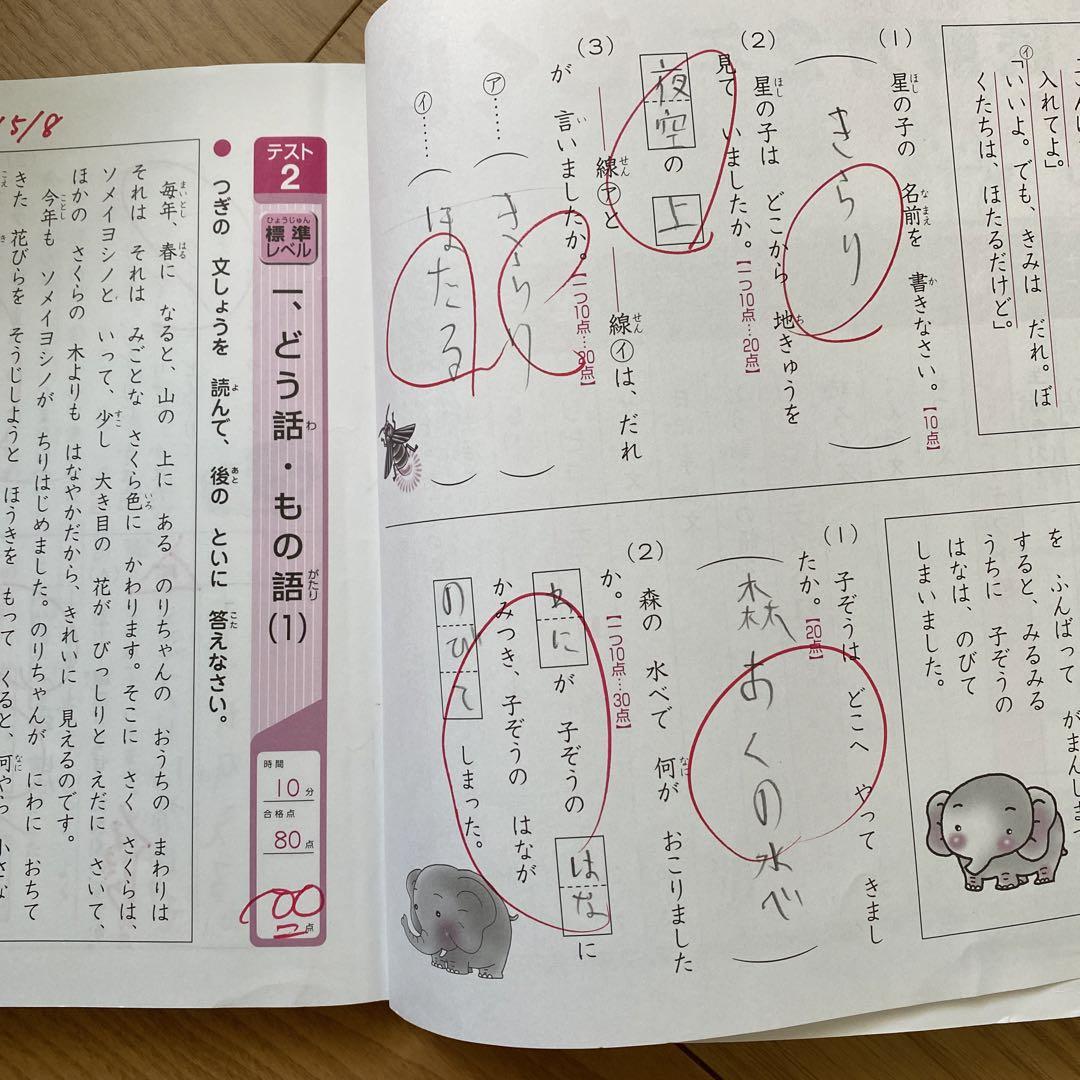 入れてよ。
㋑「いいよ。でも、きみは だれ。ぼ
くたちは、ほたるだけど」。
(1) 星の子の 名前を 書きなさい。【10点】
きらり
(2) 星の子は どこから 地きゅうを
見て いましたか。【一つ10点…20点】
夜空の 上
(3) 線㋐と 線㋑は、だれ
が 言いましたか。【一つ10点…20点】
㋐…… きらり
㋑…… ほたる
を ふんばって がまんします
すると、みるみる
うちに 子ぞうの
はなは、のびて
しまいました。
(1) 子ぞうは どこへ やって きまし
たか。【20点】
森 おくの水べ
(2) 森の 水べで 何が おこりました
か。【一つ10点…30点】
わにが 子ぞうの はなに
かみつき、子ぞうの はなが
のびて しまった。
15/8
テスト2
標準レベル
一、どう話・もの語(1)
時間 10分
合格点 80点
100点
● つぎの 文しょうを 読んで、後の といに 答えなさい。
毎年、春に なると、山の 上に ある のりちゃんの おうちの まわりは
それは それは みごとな さくら色に かわります。そこに さく さくらは、
ソメイヨシノと いって、少し 大き目の 花が びっしりと えだに さいて、
ほかの さくらの 木よりも はなやかだから、きれいに 見えるのです。
今年も ソメイヨシノが ちりはじめました。のりちゃんが にわに おちて
きた 花びらを そうじしようと ほうきを もって くると、何やら 小さな